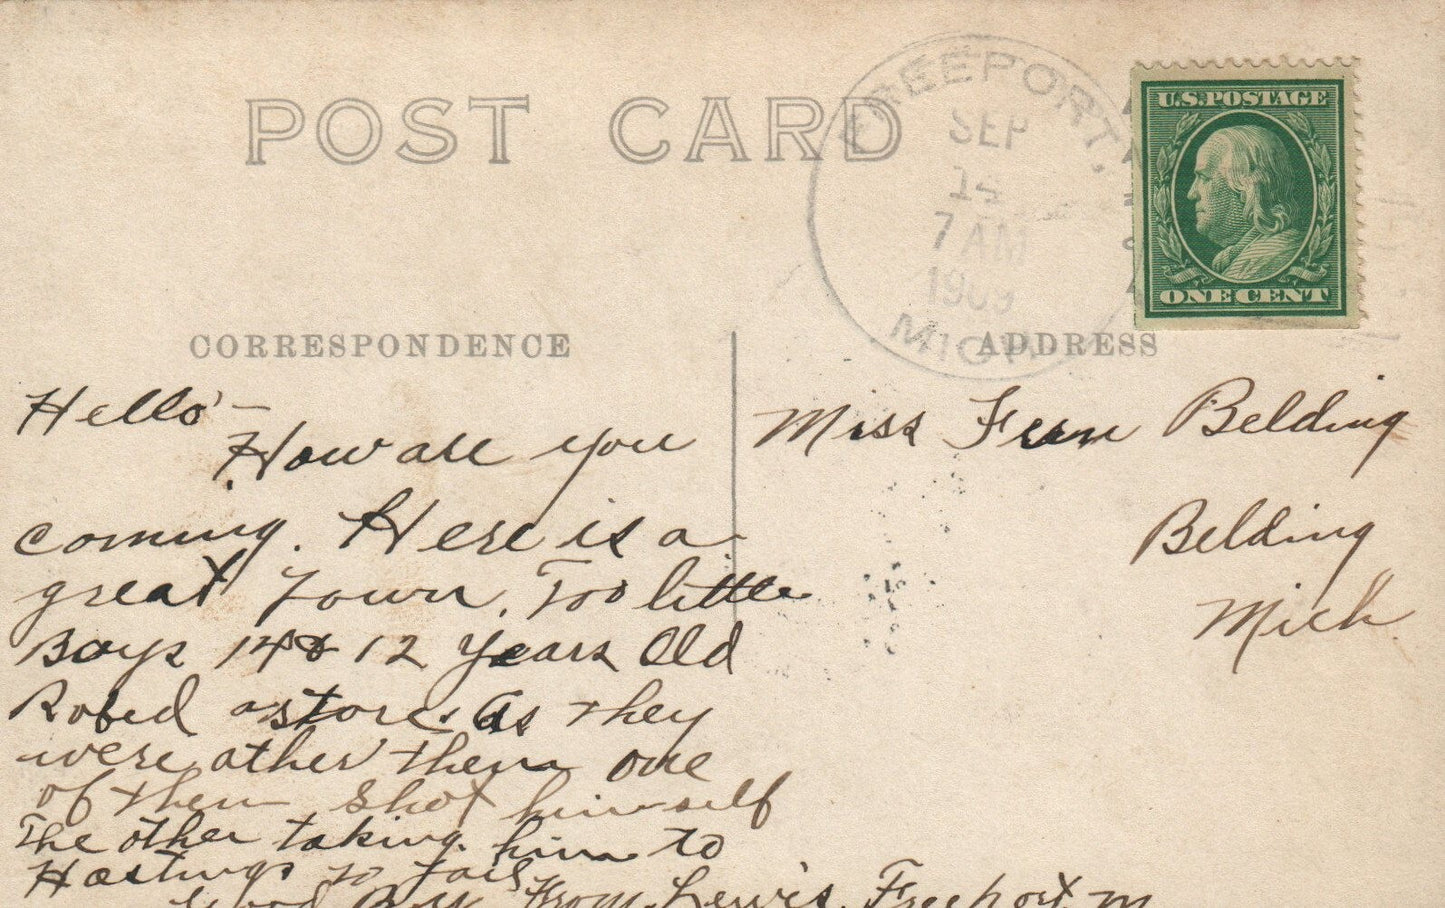 POST CARD
FREEPORT,
SEP
14
7 AM
1909
MICH.
U.S. POSTAGE
ONE CENT
CORRESPONDENCE
ADDRESS
Hello -
How are you
coming. Here is a
great Town. Too little
Boys 14 & 12 Years Old
Robed a store. As they
were ather them one
of them shot himself
The other taking him to
Hastings to Jail
Good By From Lewis. Freeport M
Miss Fern Belding
Belding
Mich